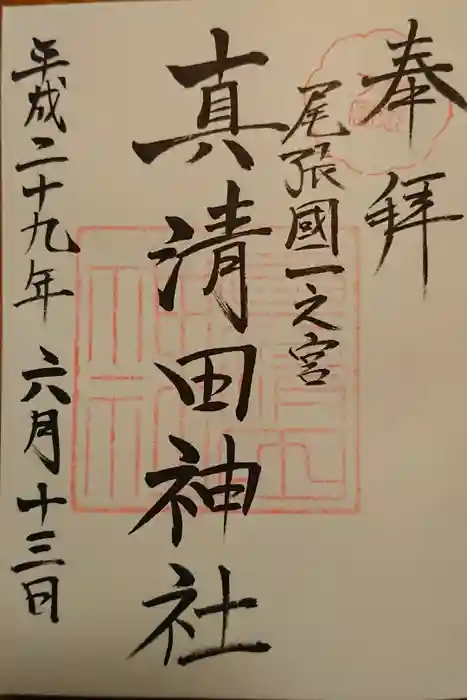 奉拝
尾張國一之宮
真清田神社
平成二十九年六月十三日